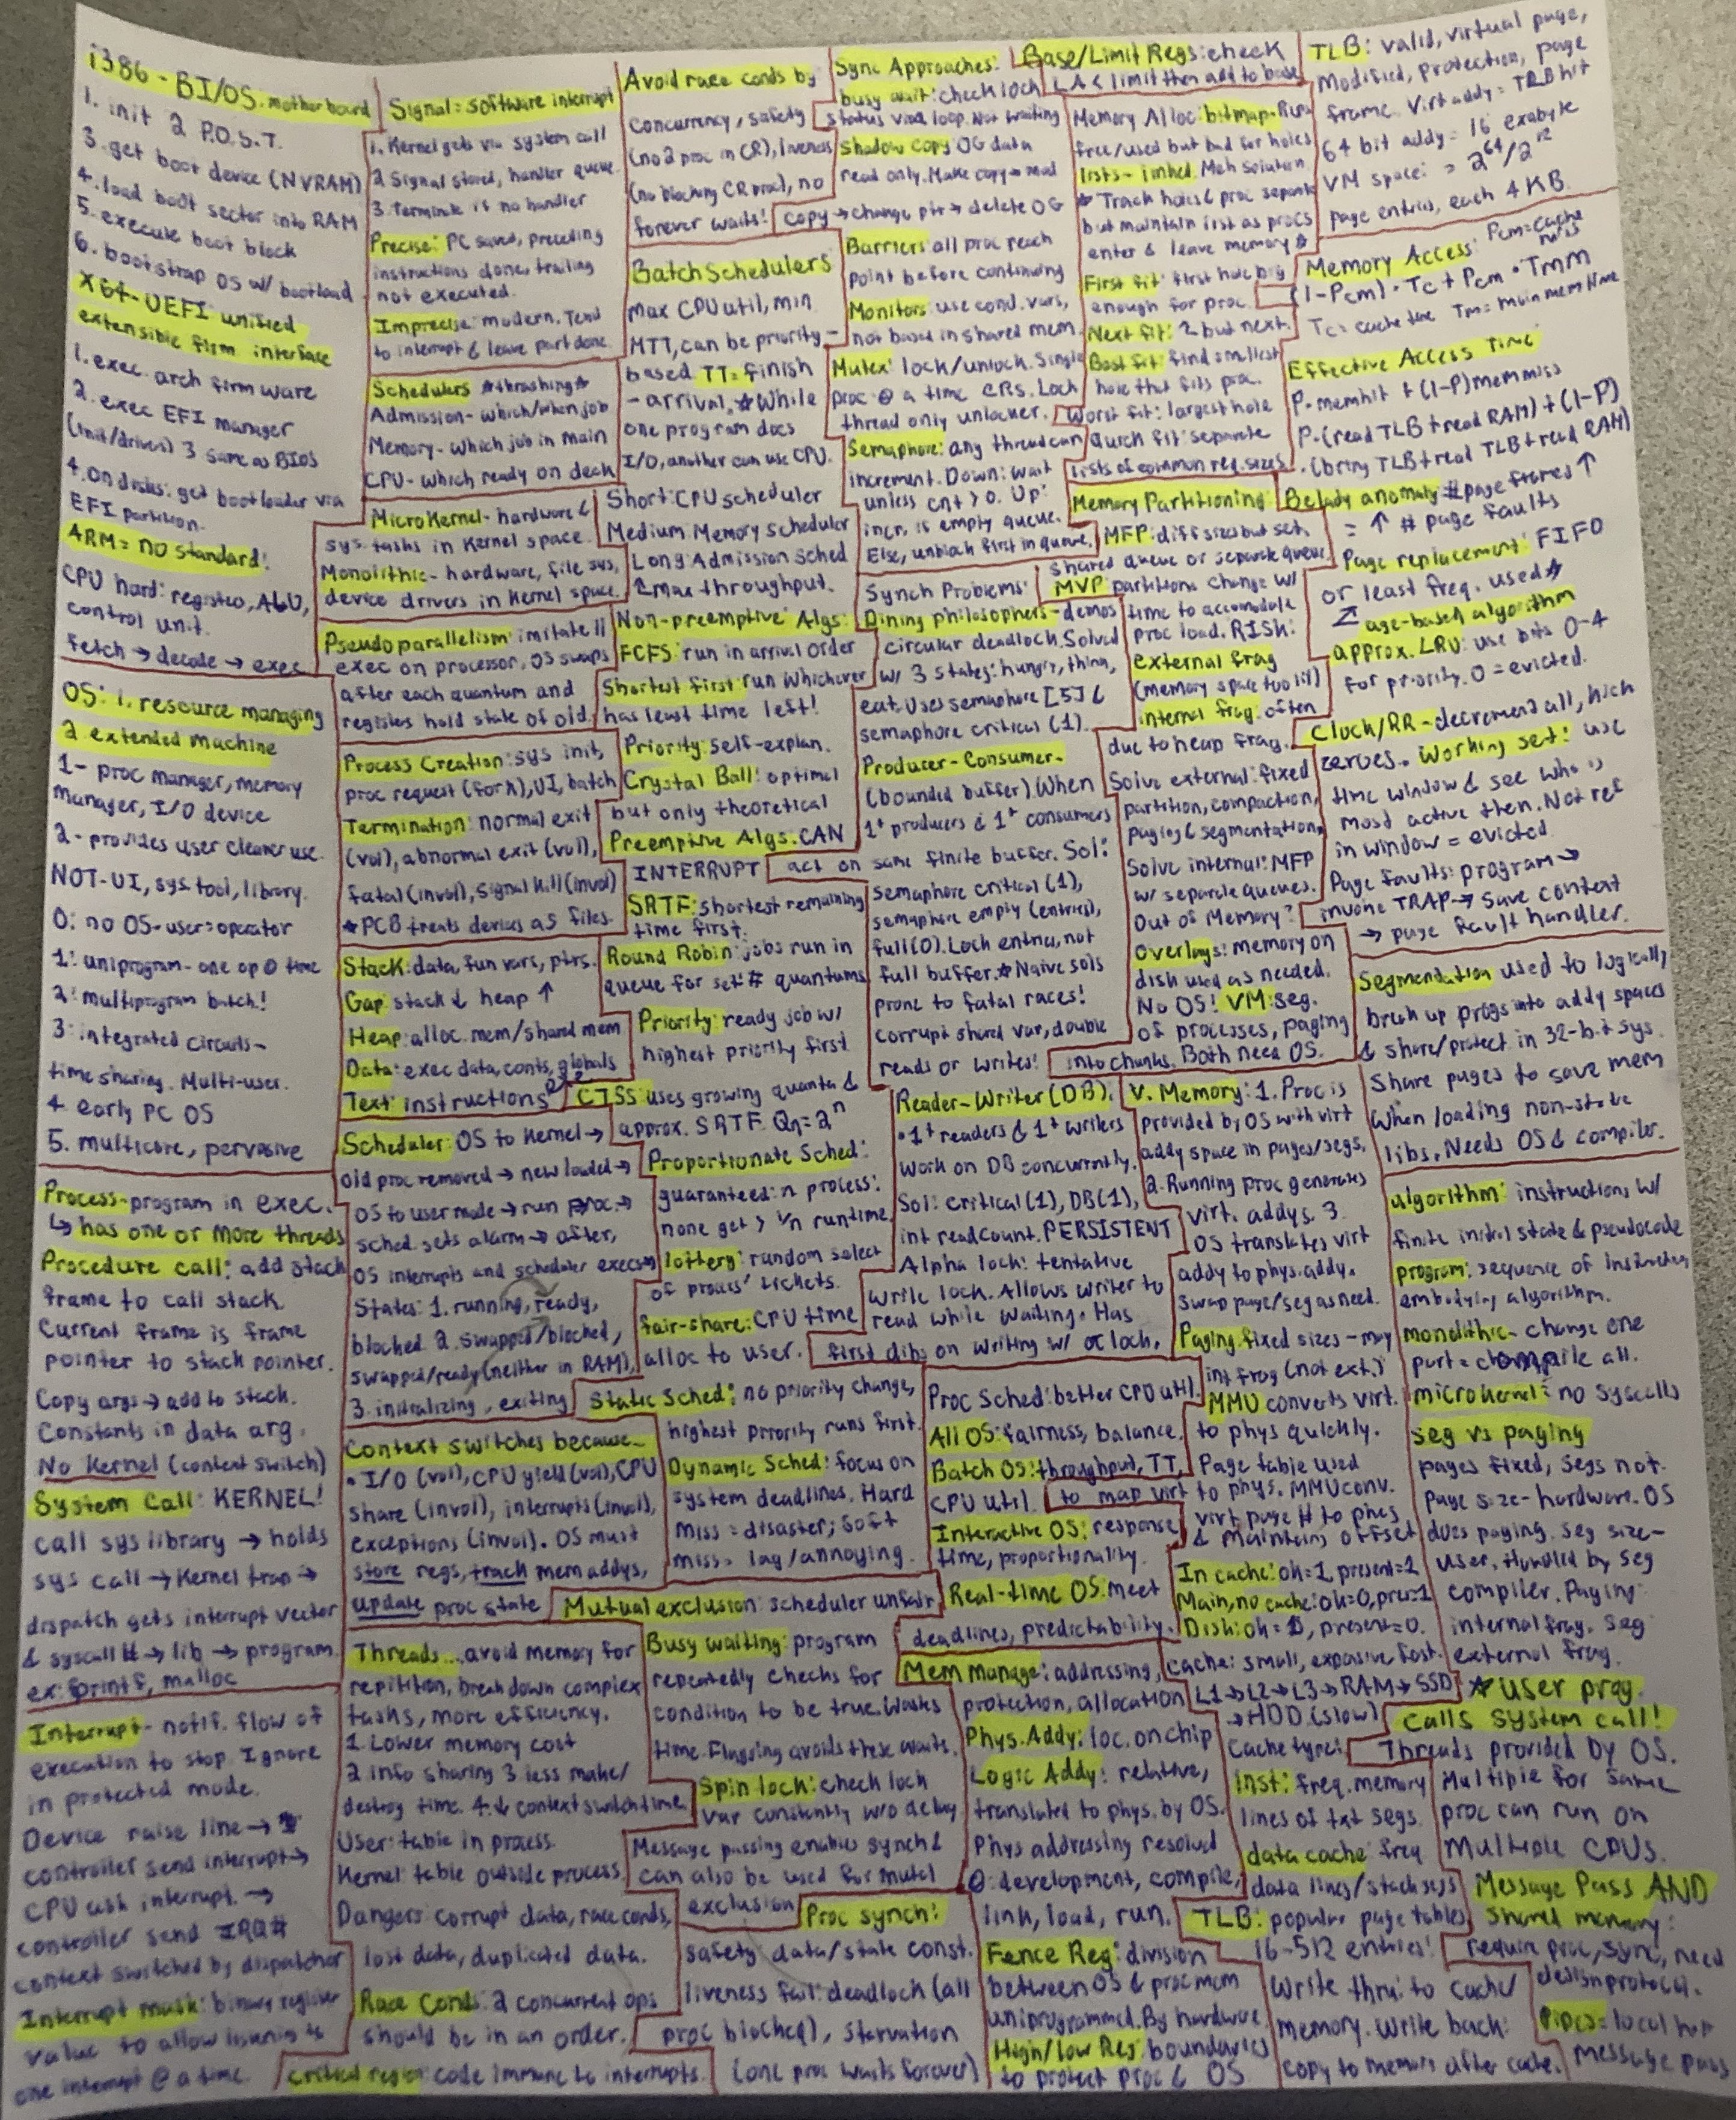 i386 - BI/OS. motherboard
1. init 2 P.O.S.T.
3. get boot device (NVRAM)
4. load boot sector into RAM
5. execute boot block
6. bootstrap OS w/ bootload
X64-UEFI unified
extensible firm interface
1. exec. arch firmware
2. exec EFI manager
(init/drives) 3 same as BIOS
4. On disks: get bootloader via
EFI partition.
ARM = no standard!
CPU hard: registers, ALU,
control unit.
fetch → decode → exec
OS: 1. resource managing
2 extended machine
1- proc manager, memory
manager, I/O device
2- provides user cleaner use.
NOT-UI, sys. tool, library.
0: no OS-user=operator
1: uniprogram- one op @ time
2: multiprogram batch!
3: integrated circuits-
time sharing. Multi-user.
4 early PC OS
5. multicore, pervasive
Process-program in exec.
↳ has one or more threads
Procedure call: add stack
frame to call stack.
Current frame is frame
pointer to stack pointer.
Copy args → add to stack.
Constants in data arg.
No Kernel (context switch)
System Call: KERNEL!
call sys library → holds
sys call → Kernel trap →
dispatch gets interrupt vector
& syscall # → lib → program.
ex: fprintf, malloc
Interrupt- notif. flow of
execution to stop. Ignore
in protected mode.
Device raise line →
controller send interrupt →
CPU ack interrupt. →
controller send IRQ#
context switched by dispatcher
Interrupt mask: binary register
value to allow listening to
one interrupt @ a time.
Signal = software interrupt
1. Kernel gets via system call
2 Signal stored, handler queue.
3. Terminate if no handler
Precise: PC saved, preceding
instructions done, trailing
not executed.
Imprecise: modern. Tend
to interrupt & leave part done.
Schedulers ☆thrashing☆
Admission- which/when job
Memory- which job in main
CPU- which ready on deck
Microkernel- hardware &
sys. tasks in Kernel space.
Monolithic- hardware, file sys,
device drivers in Kernel space.
Pseudoparallelism: imitate ||
exec on processor. OS swaps
after each quantum and
registers hold state of old.
Process Creation: sys init,
proc request (fork), UI, batch
Termination: normal exit
(vol), abnormal exit (vol),
fatal (invol), signal kill (invol)
★PCB treats devices as files.
Stack: data, fun vars, ptrs.
Gap: stack ↓ heap ↑
Heap: alloc. mem/shared mem
Data: exec data, conts, globals
Text: instructions
Scheduler: OS to Kernel →
old proc removed → new loaded →
OS to user mode → run proc. →
sched sets alarm → after,
OS interrupts and scheduler execs
States: 1. running, ready,
blocked 2. swapped/blocked,
swapped/ready (neither in RAM),
3. initializing, exiting
Context switches because-
• I/O (vol), CPU yield (vol), CPU
share (invol), interrupts (invol),
exceptions (invol). OS must
store regs, track mem addys,
update proc state
Threads... avoid memory for
repitition, break down complex
tasks, more efficiency.
1 Lower memory cost
2 info sharing 3 less make/
destroy time. 4. ↓ context switch time.
User: table in process.
Kernel: table outside process
Dangers: corrupt data, race conds,
lost data, duplicated data.
Race Conds: 2 concurrent ops
should be in an order.
critical region: code immune to interrupts.
Avoid race conds by
concurrency, safety
(no 2 proc in CR), liveness
(no blocking CR proc), no
forever waits!
Batch Schedulers
max CPU util, min
MTT, can be priority-
based TT = finish
- arrival. ☆While
one program does
I/O, another can use CPU.
Short: CPU scheduler
Medium: Memory scheduler
Long: Admission sched
max throughput.
Non-preemptive Algs:
FCFS: run in arrival order
Shortest first: run whichever
has least time left!
Priority: self-explan.
Crystal Ball: optimal
but only theoretical
Preemptive Algs. CAN
INTERRUPT
SRTF: shortest remaining
time first.
Round Robin: jobs run in
queue for set # quantums
Priority: ready job w/
highest priority first
CTSS uses growing quanta &
approx. SRTF. Qn=2^n
Proportionate Sched:
guaranteed: n process:
none get > 1/n runtime
lottery: random select
of process' tickets.
fair-share: CPU time
alloc to user.
Static Sched: no priority change,
highest priority runs first.
Dynamic Sched: focus on
system deadlines. Hard
miss = disaster; soft
miss = lag/annoying.
Mutual exclusion: scheduler unfair
Busy waiting: program
repeatedly checks for
condition to be true. Wastes
time. Flagging avoids these waits.
Spin lock: check lock
var constantly w/o delay
Message passing enables synch &
can also be used for mutal
exclusion
Proc synch:
safety: data/state const.
liveness fail: deadlock (all
proc blocked), starvation
(one proc waits forever)
Sync Approaches:
busy wait: check lock
status via loop. Not waiting
Shadow copy: OG data
read only. Make copy → mod
copy → change ptr → delete OG
Barriers: all proc reach
point before continuing
Monitors: use cond. vars,
not based in shared mem.
Mutex: lock/unlock. Single
proc @ a time CRs. Lock
thread only unlocker.
Semaphore: any thread can
increment. Down: wait
unless cnt > 0. Up:
incr. is empty queue.
Else, unblock first in queue.
Synch Problems:
Dining philosophers- demos
circular deadlock. Solved
w/ 3 states: hungry, think,
eat. Uses semaphore [5] &
semaphore critical (1).
Producer-Consumer-
(bounded buffer) When
1+ producers & 1+ consumers
act on same finite buffer. Sol:
semaphore critical (1),
semaphore empty (entries),
full (0). Lock entries, not
full buffer. ☆Naive sols
prone to fatal races!
corrupt shared var, double
reads or writes!
Reader-Writer (DB).
• 1+ readers & 1+ writers
work on DB concurrently.
Sol: critical (1), DB(1),
int readcount. PERSISTENT
Alpha lock: tentative
write lock. Allows writer to
read while waiting. Has
first dibs on writing w/ α lock.
Proc Sched: better CPU util.
All OS: fairness, balance.
Batch OS: throughput, TT,
CPU util.
Interactive OS: response
time, proportionality.
Real-time OS: meet
deadlines, predictability.
Mem Manage: addressing,
protection, allocation
Phys. Addy: loc. on chip
Logic Addy: relative,
translated to phys. by OS.
Phys addressing resolved
@: development, compile,
link, load, run.
Fence Reg: division
between OS & proc mem
uniprogrammed. By hardware
High/low Reg: boundaries
to protect proc & OS
Base/Limit Regs: check
LA < limit then add to base
Memory Alloc: bitmap- Reps
free/used but bad for holes
lists- linked. Meh solution.
★ Track holes & proc separate
but maintain list as procs
enter & leave memory ☆
First fit: first hole big
enough for proc.
Next fit: 2 but next.
Best fit: find smallest
hole that fits proc.
Worst fit: largest hole
Quick fit: separate
lists of common req. sizes
Memory Partitioning:
MFP: diff sizes but set,
shared queue or separate queue
MVP: partitions change w/
time to accomodate
proc load. RISK:
external frag
(memory space too lil)
internal frag: often
due to heap frag.
Solve external: fixed
partition, compaction,
paging & segmentation
Solve internal: MFP
w/ separate queues.
Out of Memory?
Overlays: memory on
disk used as needed.
No OS! VM: seg.
of processes, paging
into chunks. Both need OS.
V. Memory: 1. Proc is
provided by OS with virt
addy space in pages/segs.
2. Running proc generates
virt. addys. 3.
OS translates virt
addy to phys. addy.
Swap page/seg as need.
Paging: fixed sizes - may
int frag (not ext.)
MMU converts virt.
to phys quickly.
Page table used
to map virt to phys. MMU conv.
virt page # to phys
& maintains offset
In cache: ok=1, present=1
Main, no cache: ok=0, pres=1
Disk: ok=, present=0.
Cache: small, expensive fast.
L1→L2→L3→RAM→SSD
→HDD (slow)
Cache type:
inst: freq. memory
lines of txt segs.
data cache: freq
data lines/stack segs
TLB: popular page tables
16-512 entries!
Write thru: to cache/
memory. Write back:
copy to memory after cache.
TLB: valid, virtual page,
Modified, protection, page
frame. Virt addy = TLB hit
64 bit addy = 16 exabyte
VM space: = 2^64/2^12
page entries, each 4 KB.
Memory Access: Pcm=cache miss
(1-Pcm) · Tc + Pcm · Tmm
Tc = cache time Tm = main mem time
Effective Access Time
P·memhit + (1-P)memmiss
P·(read TLB + read RAM) + (1-P)
·(bring TLB + read TLB + read RAM)
Belady anomaly: # page frames ↑
= ↑ # page faults
Page replacement: FIFO
or least freq. used☆
age-based algorithm
approx. LRU: use bits 0-4
for priority. 0 = evicted.
Clock/RR- decrement all, kick
zeroes. Working set: use
time window & see who is
most active then. Not ref
in window = evicted
Page faults: program →
invoke TRAP → save context
→ page fault handler.
Segmendation used to logically
break up progs into addy spaces
& share/protect in 32-bit sys.
Share pages to save mem
when loading non-static
libs. Needs OS & compiler.
algorithm: instructions w/
finite initial state & pseudocode
program: sequence of instructions
embodying algorithm.
monolithic- change one
part = compile all.
microkernel: no syscalls
seg vs paging
pages fixed, segs not.
Page size- hardware. OS
does paging. Seg size-
user. Handled by seg
compiler. Paging:
internal frag. Seg
external frag.
★ user prog.
calls system call!
Threads provided by OS.
Multiple for same
proc can run on
Multiple CPUs.
Message Pass AND
Shared memory:
require proc, sync, need
design protocol.
Pipes = local
message pass